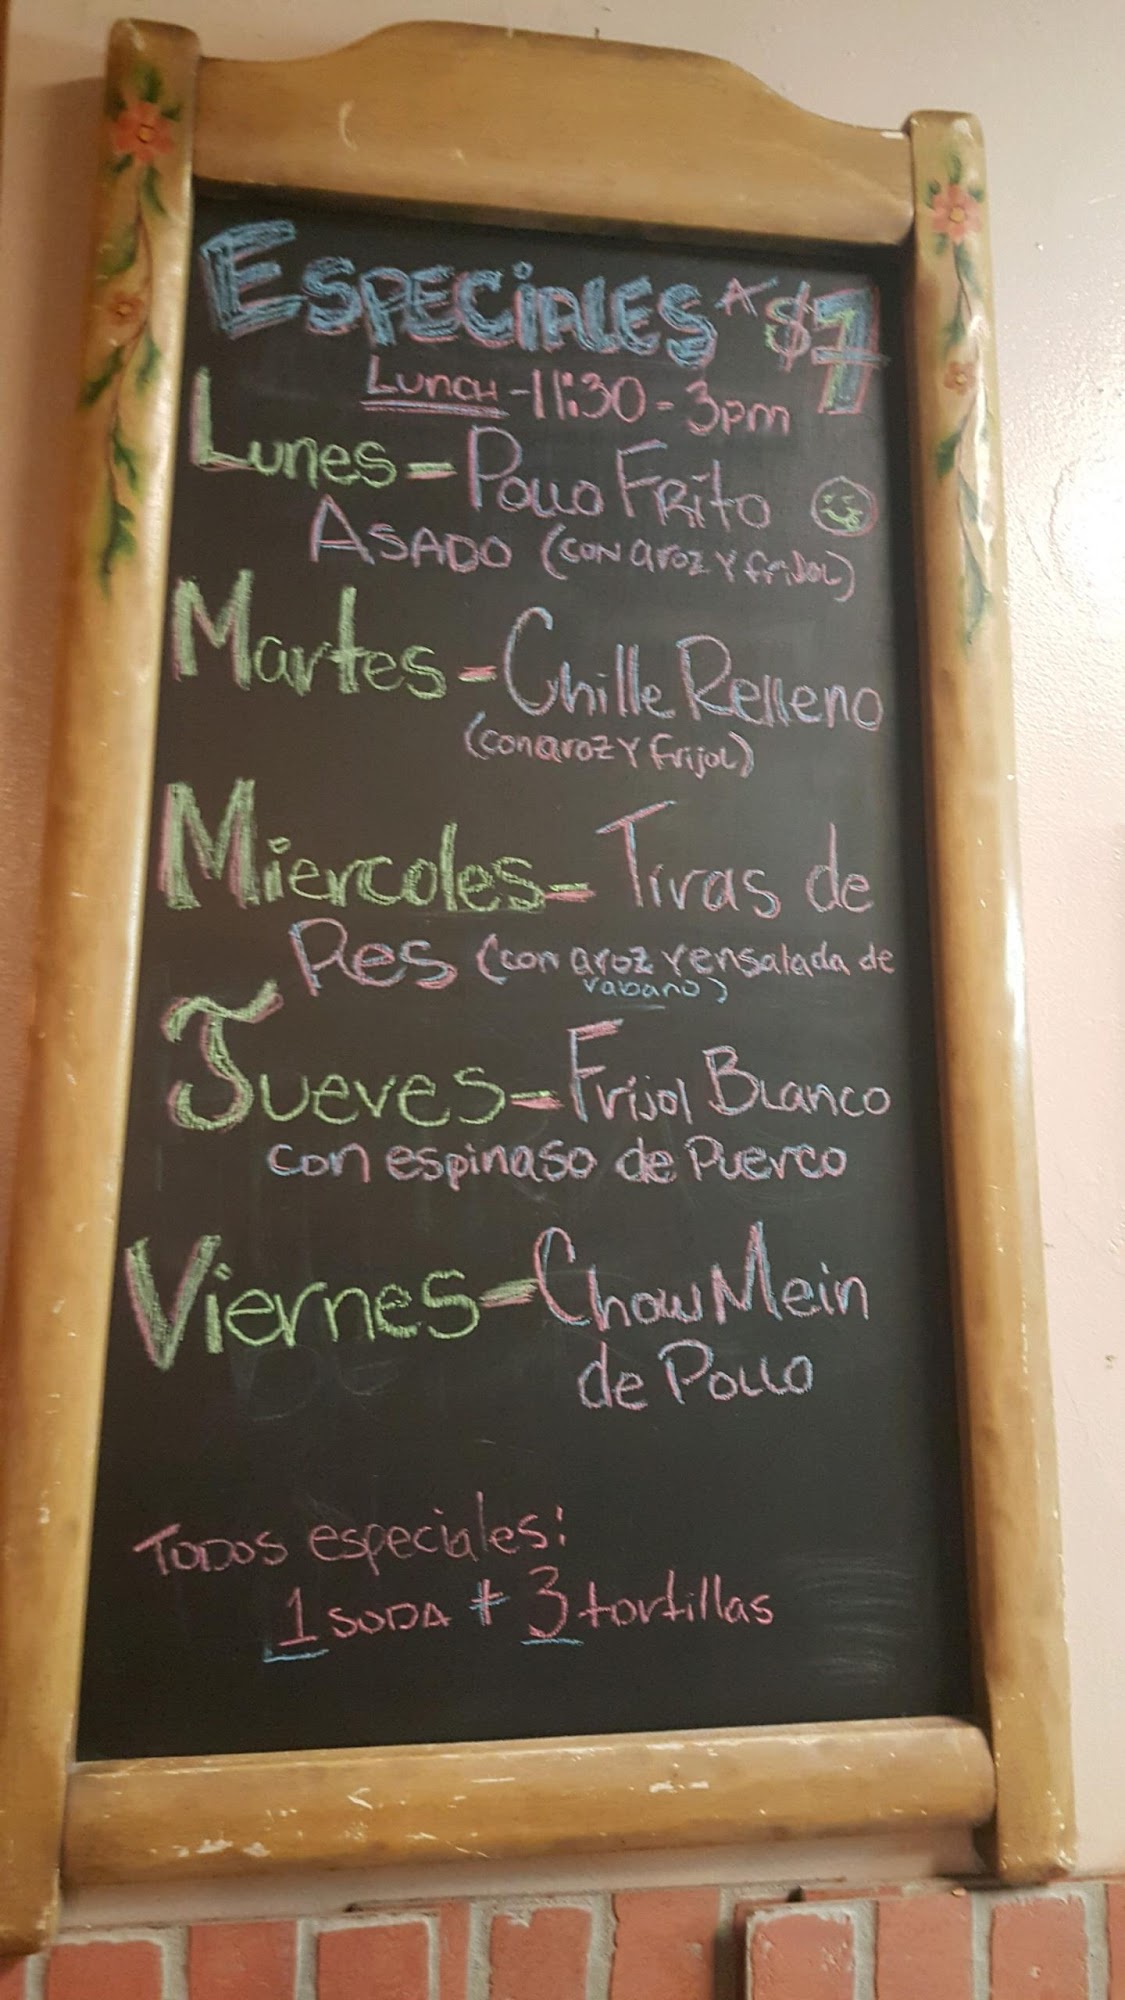 ESPECiALES A $7
LUNCH - 11:30 - 3pm
Lunes - Pollo FRito
ASADO (CON aroz Y friJOL)
Martes - Chille Relleno
(con aroz Y frijol)
Miercoles - Tiras de
Res (con aroz Y ensalada de
rabano)
Jueves - Frijol Blanco
con espinaso de Puerco
Viernes - Chow Mein
de Pollo
TODOS especiales:
1 SODA + 3 tortillas